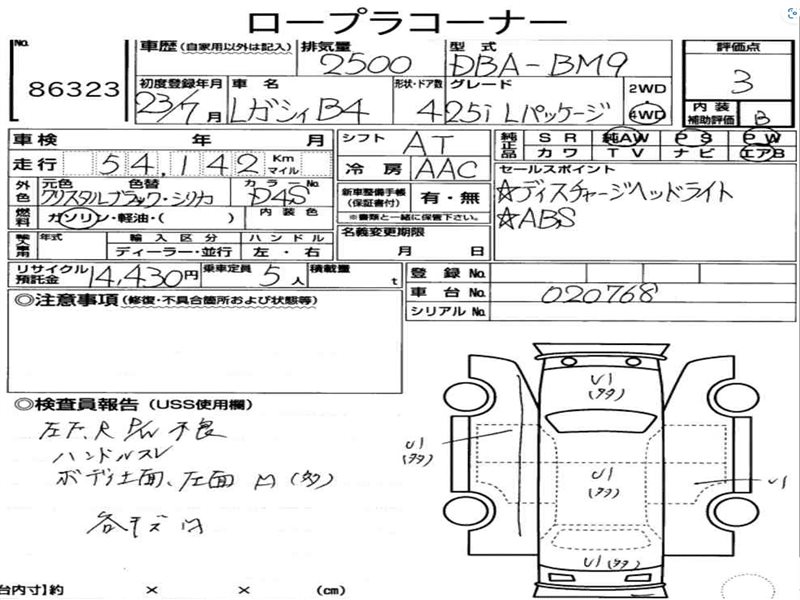 ロープラコーナー
No.
86323
車歴 (自家用以外は記入)
排気量 2500
型式 DBA-BM9
評価点
3
内装
補助評価 B
初度登録年月 23/7月
車名 レガシィB4
形状・ドア数 4
グレード 2.5i Lパッケージ
2WD
4WD
車検 年 月
走行 54,142 Km マイル
シフト AT
冷房 AAC
純正品 SR 純AW PS PW
カワ TV ナビ エアB
外色 元色 色替 クリスタルブラック・シリカ
カラーNo. D4S
燃料 ガソリン・軽油・( )
内装色
新車整備手帳
(保証書付) 有・無
※書類と一緒に保管下さい。
セールスポイント
☆ディスチャージヘッドライト
☆ABS
輸入車用 年式 輸入区分 ハンドル
ディーラー・並行 左・右
名義変更期限
月 日
リサイクル
預託金 14,430円
乗車定員 5人
積載量 t
登録No.
車台No. 020768
シリアルNo.
◎注意事項 (修復・不具合箇所および状態等)
◎検査員報告 (USS使用欄)
左F,R P/W不良
ハンドルスレ
ボディ上面、左面 凹(多)
各キズ凹
U1
(多多)
U1
(多多)
U1
(多多)
U1
U1(多多)
台内寸]約 × × (cm)